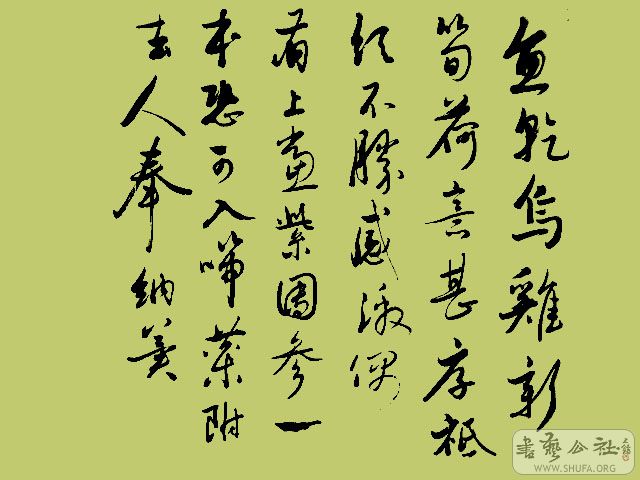 魚乾烏雞新
筍荷意甚厚祗
領不勝感激偶
有上黨紫團參一
本恐可入藥附
去人奉納
書藝公社
WWW.SHUFA.ORG